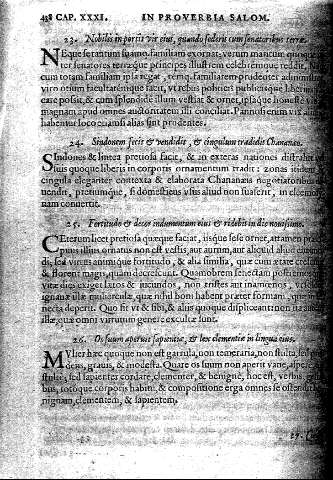 438 CAP. XXXI. IN PROVERBIA SALOM.
23. Nobilis in portis vir eius, quando sederit cum senatoribus terræ.
NEque se tantùm suamq; familiam exornat, verùm maritum quoque
ter senatores terræque principes illustrem celebrémque reddit.
cùm totam familiam ipsa regat, temq́; familiarem prudenter administret
viro otium facultatémque facit, vt rebus politicis publicisque
care possit, & cum splendidè illum vestiat & ornet, ipsáque honestè
magnam apud omnes auctoritatem illi conciliat. Pannosi enim vix
habentur loco, etiamsi aliàs sint prudentes.
24. Sindonem fecit & vendidit, & cingulum tradidit Chananæo.
SIndones & lintea pretiosa facit, & in exteras nationes distrahit
ius quoque liberis in corporis ornamentum tradit: zonas
cingula eleganter contexta & elaborata Chananæis negotiatoribus
vendit, pretiúmque, si domesticus vsus aliud non suaserit, in
nam conuertit.
25. Fortitudo & decor indumentum eius & ridebit in die nouissimo.
CEterùm licet pretiosa quæque faciat, iisque sese ornet, attamen
puus illius ornatus non est vestis, aut aurum, aut aliquid aliud
di, sed virtus animíque fortitudo, & alia similia, quæ cum ætate
& florent magis, quàm decrescunt. Quamobrem senectam postremósque
vitæ dies exiget lætos & iucundos, non tristes aut inamœnos,
ignauæ illæ mulierculæ, quæ nihil boni habent præter formam, quam
necta deperit. Quo fit vt & sibi, & aliis quoque displiceant:
illæ, quæ omni virtutum genere excultæ sunt.
26. Os suum aperuit sapientiæ, & lex clementiæ in lingua eius.
MVlier hæc quoque non est garrula, non temeraria, non stulta, sed
grauis, & modesta. Quare os suum non aperit vanè,
stultè, sed sapienter cordatè, clementer, & benignè, hoc est, verbis,
bus, totóque corporis habitu & compositione erga omnes se
nignam, clementem, & sapientem.
27.